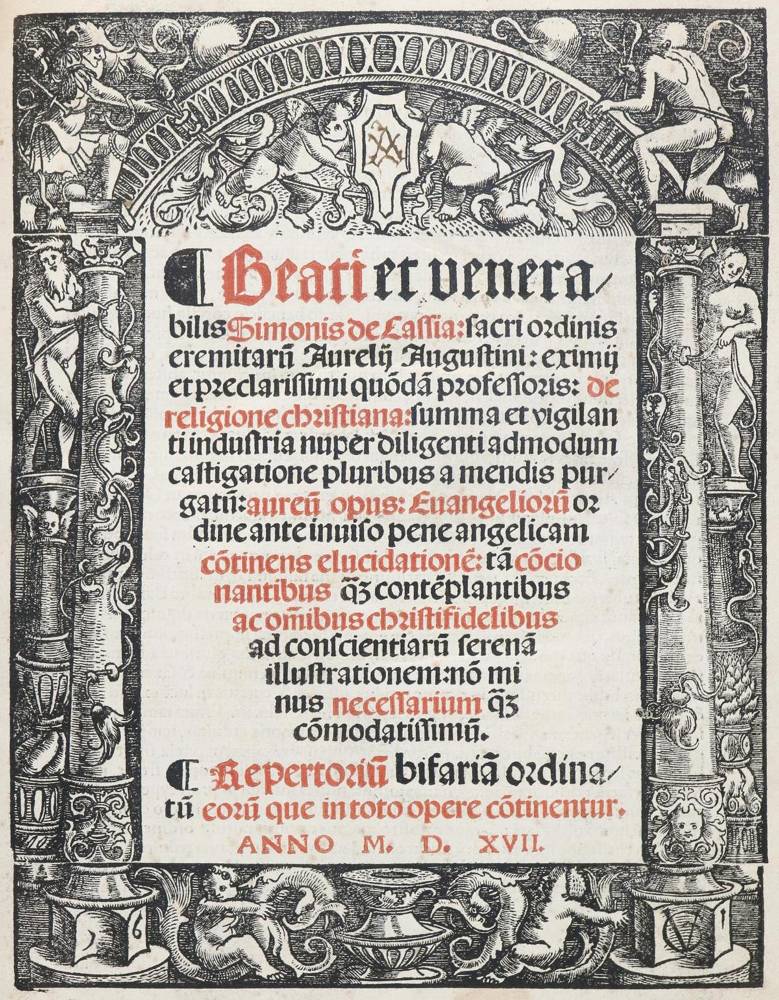 ¶ Beati et venera/
bilis Simonis de Cassia: sacri ordinis
eremitarū Aurelij Augustini: eximij
et preclarissimi quōdā professoris: de
religione christiana: summa et vigilan
ti industria nuper diligenti admodum
castigatione pluribus a mendis pur/
gatū: aureū opus: Euangeliorū or
dine ante inuiso pene angelicam
cōtinens elucidationē: tā cōcio
nantibus qꝫ̄ contēplantibus
ac om̄ibus christifidelibus
ad conscientiarū serenā
illustrationem: nō mi
nus necessarium qꝫ̄
cōmodatissimū.
¶ Repertoriū bifariā ordina/
tū eorū que in toto opere cōtinentur.
ANNO M. D. XVII.